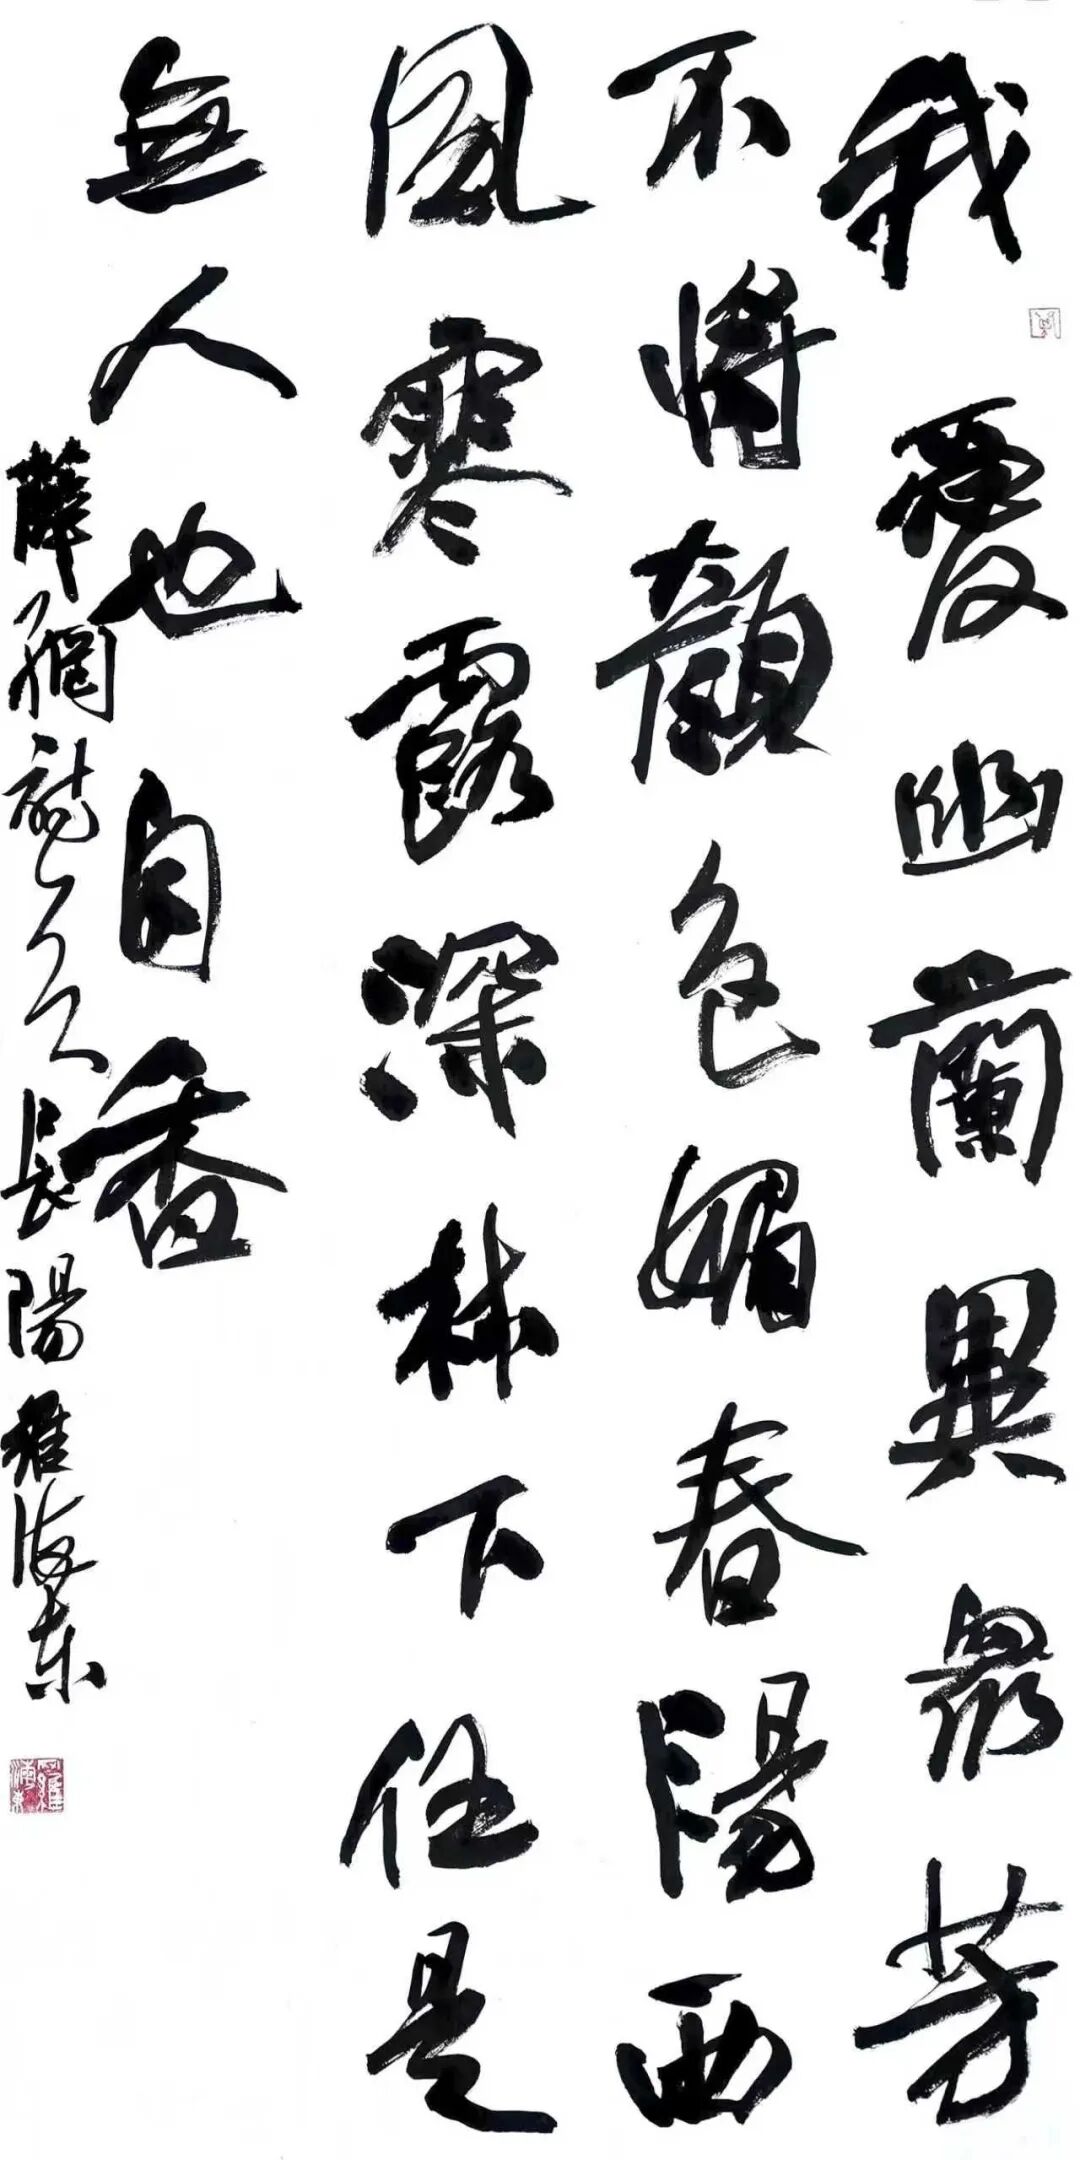 我愛幽蘭異眾芳
不將顏色媚春陽西
風寒露深林下任是
無人也自香
薛網 長陽 海東